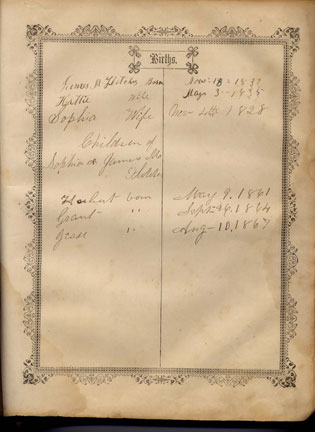 Births.
James M Fletcher Born Nov 18 - 1832
Hattie wife May 3 - 1835
Sophia Wife Nov 4th 1828
Children of
Sophia & James M
Herbert born May 9, 1861
Grant " Sept 1864
Jesse " Aug - 10, 1867